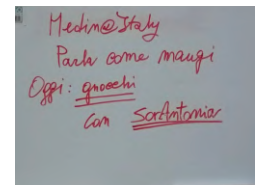 Medin@Italy
Parla come mangi
Oggi: gnocchi
con SorAntonia